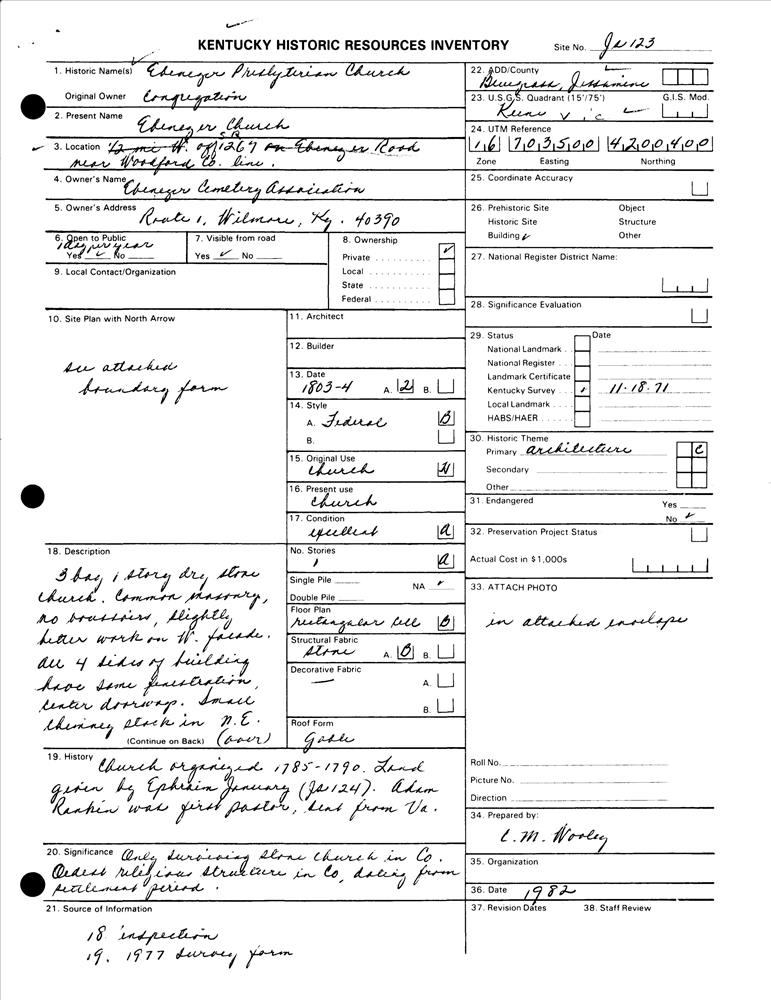 KENTUCKY HISTORIC RESOURCES INVENTORY
Site No. Js 123
1. Historic Name(s) Ebenezer Presbyterian Church
Original Owner Congregation
2. Present Name
Ebenezer Church
3. Location 1/2 mi W. off 1267 on Ebenezer Road
near Woodford Co. line.
4. Owner's Name Ebenezer Cemetery Association
5. Owner's Address Route 1, Wilmore, Ky. 40390
6. Open to Public
1 day per year
Yes ✓ No
7. Visible from road
Yes ✓ No
8. Ownership
Private ✓
Local
State
Federal
9. Local Contact/Organization
10. Site Plan with North Arrow
see attached
boundary form
11. Architect
12. Builder
13. Date
1803-4 A. 2 B.
14. Style
A. Federal B
B.
15. Original Use
church
16. Present use
church
17. Condition
excellent A
No. Stories
1 A
Single Pile
NA ✓
Double Pile
Floor Plan
rectangular cell B
Structural Fabric
stone A. O B.
Decorative Fabric
— A.
B.
Roof Form
Gable
18. Description
3 bay 1 story dry stone
church. Common masonry,
no voussoirs, slightly
better work on W. facade.
All 4 sides of building
have same fenestration,
center doorway. Small
chimney stack in N.E.
(Continue on Back) (over)
19. History Church organized 1785-1790. Land
given by Ephraim January (Js 124). Adam
Rankin was first pastor, sent from Va.
20. Significance Only surviving stone church in Co.
Oldest religious structure in Co, dating from
settlement period.
21. Source of Information
18 inspection
19. 1977 survey form
22. ADD/County
Bluegrass, Jessamine
23. U.S.G.S. Quadrant (15'/75') G.I.S. Mod.
Keene
24. UTM Reference
16 703500 4200400
Zone Easting Northing
25. Coordinate Accuracy
26. Prehistoric Site Object
Historic Site Structure
Building ✓ Other
27. National Register District Name:
28. Significance Evaluation
29. Status Date
National Landmark
National Register
Landmark Certificate
Kentucky Survey ✓ 11-18-71
Local Landmark
HABS/HAER
30. Historic Theme
Primary architecture C
Secondary
Other
31. Endangered Yes
No ✓
32. Preservation Project Status
Actual Cost in $1,000s
33. ATTACH PHOTO
in attached envelope
Roll No.
Picture No.
Direction
34. Prepared by:
C.M. Wooley
35. Organization
36. Date 1982
37. Revision Dates 38. Staff Review